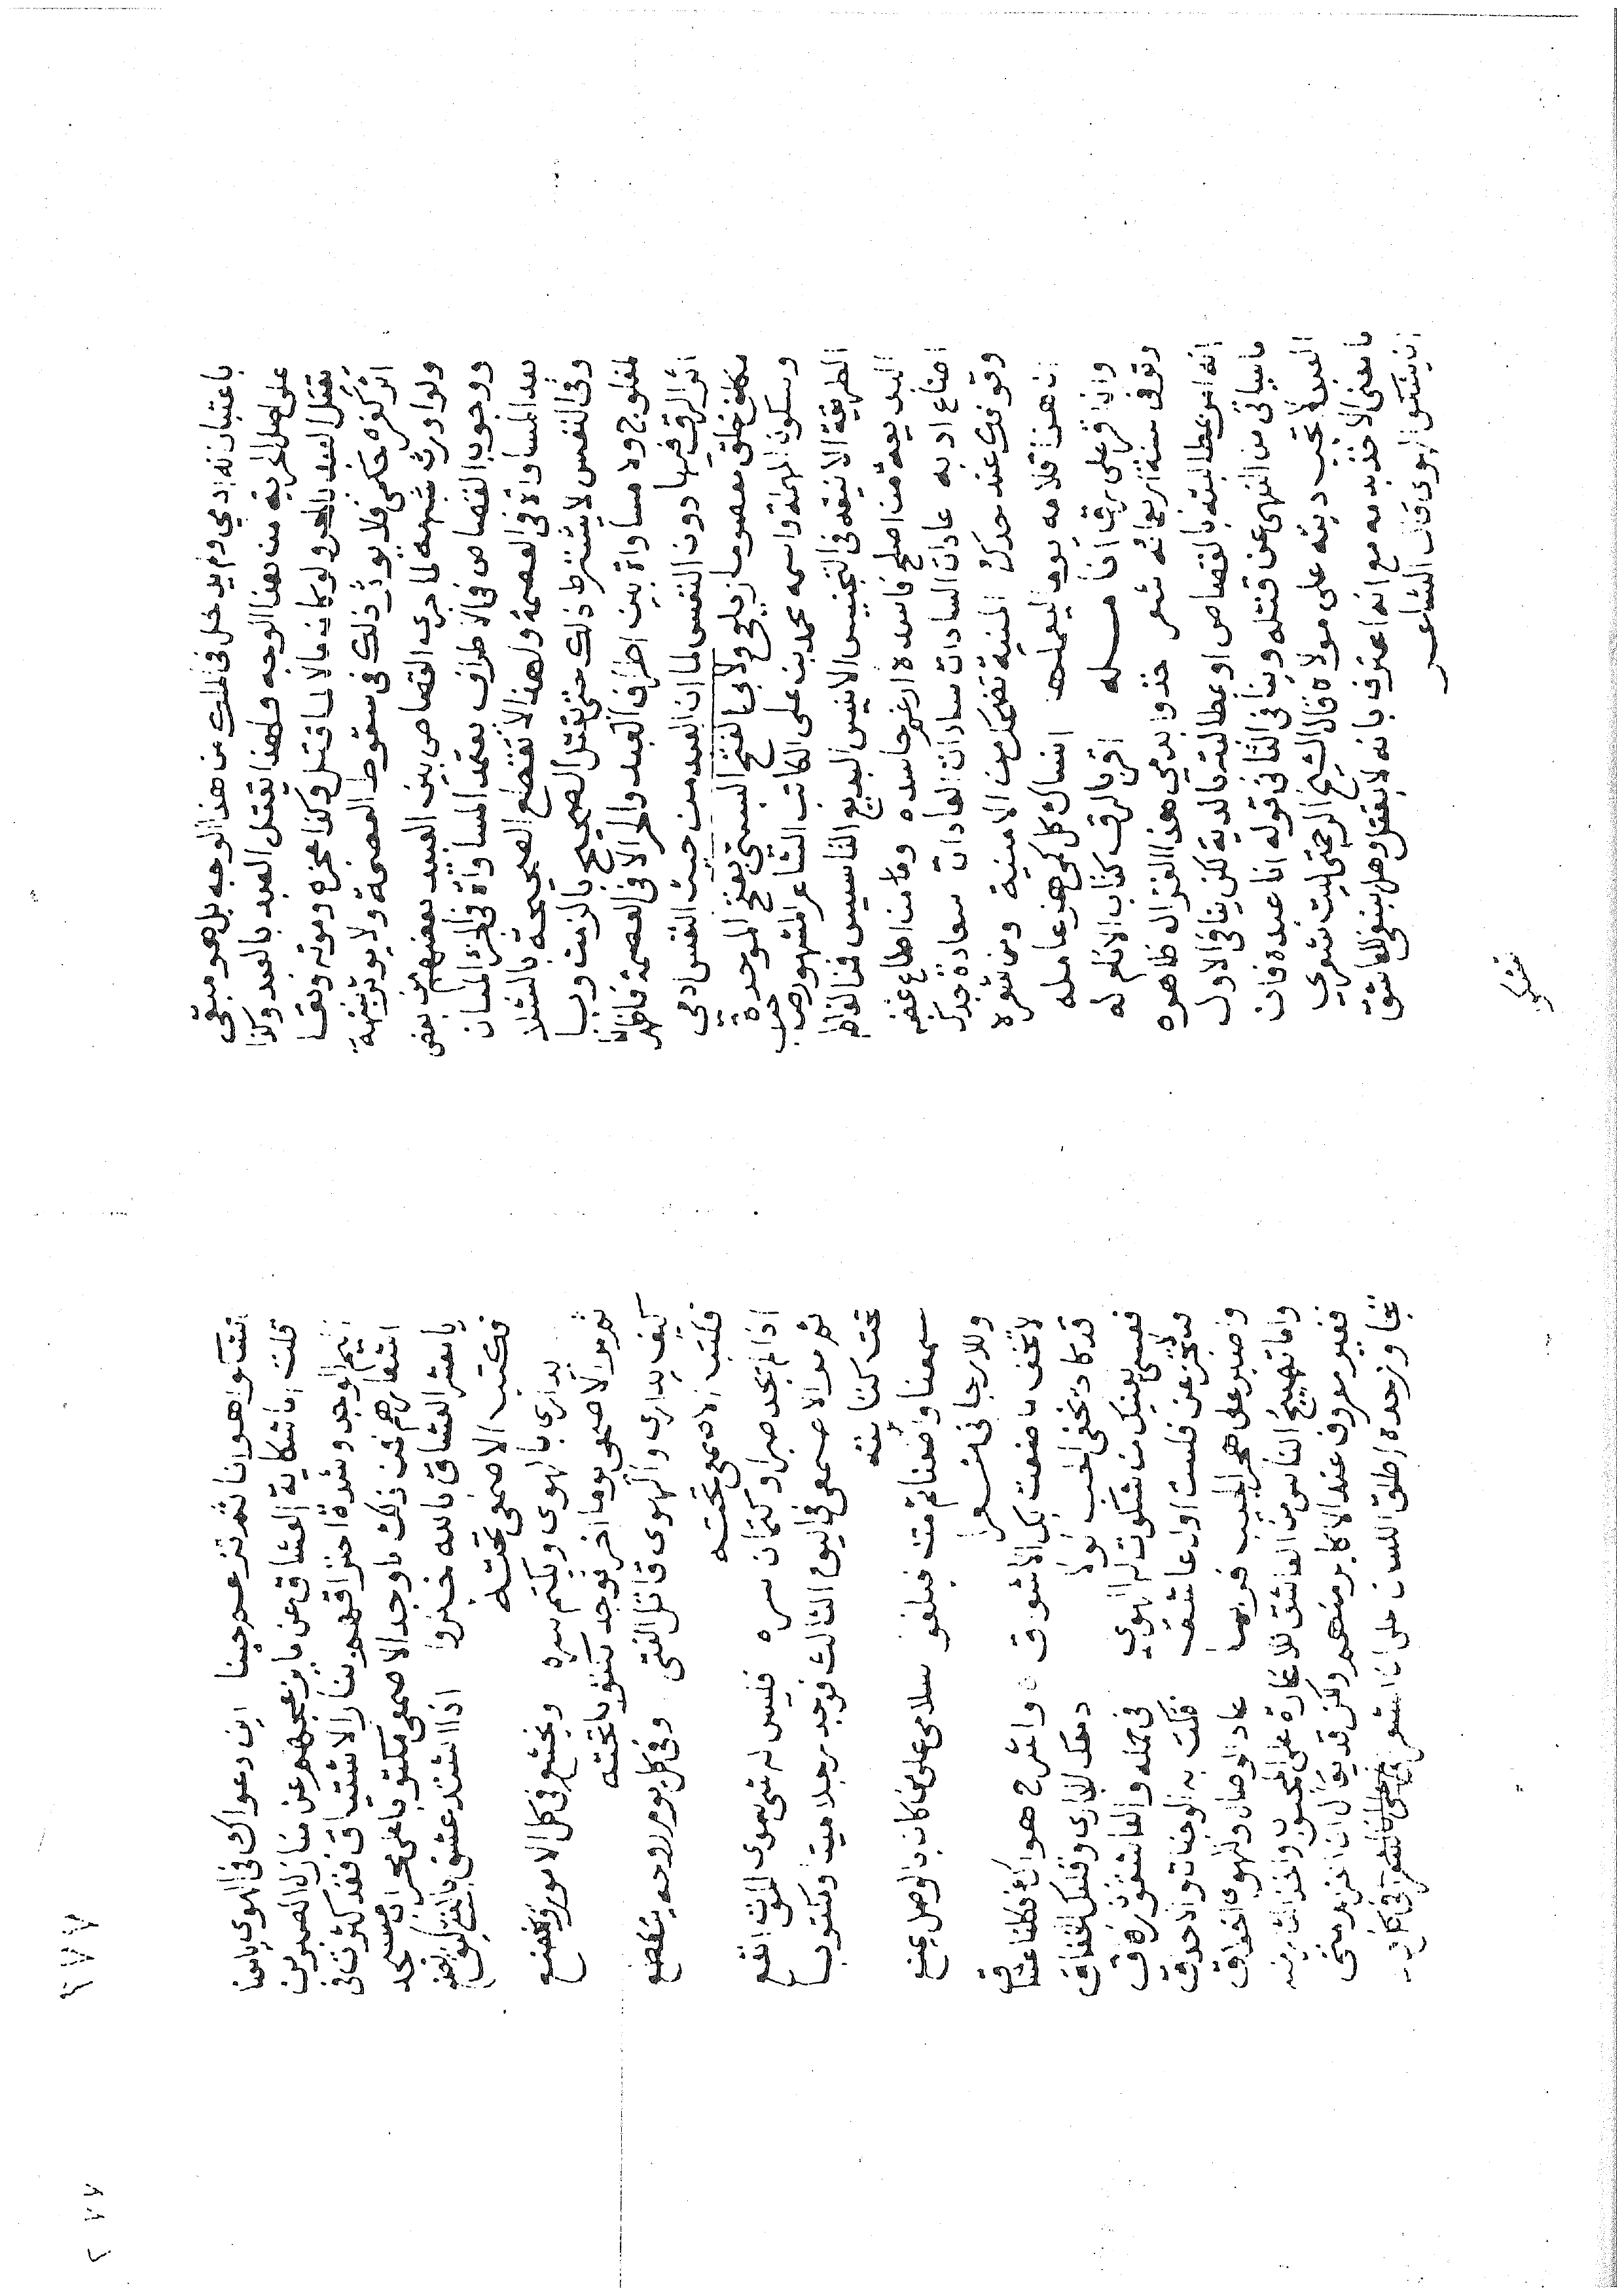 باعتبار انه ادمي ولم يدخل في الملك من هذا الوجه بل هو مبقى
على اصل الحرية من هذا الوجه ولهذا يقتل العبد بالعبد وكذا
يقتل العبد بالحر ولو كان مالا لما قتل وكذا عجزه وموته وبقا
اثر كفره حكمي فلا يوثر ذلك في سقوط العصمة ولا يورث شبهة
ولو اورث شبهه لما جرى القصاص بين العبيد بعضهم من بعض
ووجوب القصاص في الاطراف يعتمد المساواة في الجزء المبان
بعد المساواة في العصمة ولهذا لا تقطع الصحيحة بالشلا
وفي النفس لا يشترط ذلك حتى يقتل الصحيح بالزمن وبا
لمفلوج ولا مساواة بين اطراف العبد والحر الا في العصمة فاظهرنا
اثر الرق فيها دون النفس لما ان العبد من حيث النفس ادمي
مكلف خلق معصوما زيلعي ولابي الفتح البستي بفتح الموحدة
وسكون المهملة واسمه محمد بن علي الكاتب الشاعر المشهور صاحب
الطريقة الانيقه في التجنيس الانيس البديع التاسيس فمن الفاظه
البديعة من اصلح فاسده ارغم حاسده ومن اطاع غضبه
اضاع ادبه عادات السادات سادات العادات من سعادة جدك
وقوفك عند حدك المنية تضحك من الامنية ومن شعره
ان هز اقلامه يوما ليعملها انساك كل كمي هز عامله
وان اقر على رق انامله اقر بالرق كتاب الانام له
وتوفي سنة اربعمائه شعر خذوا بدمي هذا الغزال ظاهره
انه امر بمطالبته بالقصاص او بمطالبته بالدية لكن ينافي الاول
ما سياتي من النهي عن قتله وينافي الثاني قوله انا عبده فان
العبد لا تجب ديته على مولاه قال الشيخ الرحمتي ليت شعري
ما معنى الاخذ بدمه مع انه اعترف بانه لا يقتل وهل ينبغي للعاشق
ان يشكو الهوى قال الشاعر
تشكو
٢٧٧
تشكوا هوانا ثم تزعم حبنا اين دعواك في الهوى يا معنا
قلت اما شكاية العشاق عن ما يزعجهم عن منازل الصبر من
اليم الوجد وشدة احتراقهم بنار الاشتياق فقد كثرت في
اشعارهم فمن ذلك ما وجد الاصمعي مكتوبا على محراب مسجد
يا معشر العشاق بالله خبروا اذا اشتد عشق بالفتى كيف يصنع
فكتب الاصمعي تحته
يداري بالهوى ويكتم سره ويخشع في كل الامور ويخضع
ثم مر الاصمعي يوما اخر فوجد مكتوبا تحته
كيف يداري والهوى قاتل الفتى وفي كل يوم روحه يتقطع
فكتب الاصمعي تحته
اذا لم يجد صبرا وكتمان سره فليس له شي سوى الموت انفع
ثم مر الاصمعي في اليوم الثالث فوجد رجلا ميتا ومكتوبا
تحت كتابته
سمعنا واطعنا ثم متنا فبلغو سلامي على من كان بالوصل يمنع
وللارجاني شعرا
لا تخف ما صنعت بك الاشواق واشرح هواك فكلنا عشاق
قد كاد يخفى الحب لولا دمعك الجاري وقلبك الخفاق
فعسى يعينك من شكوت له الهوى في حمله والعاشقون رفاق
لا تجزعن فلست اول عاشق فتكت به الوجنات والاحداق
واصبر على هجر الحبيب فربما عاد الوصال وللهوى اخلاق
واما تهييج الناس من العاشق للاغارة على المحبوب واخذ الثار منه
فغير معروف عند الاكابر منهم ولكن قد يقال ان اخذهم متى
تجاوز حده اطلق اللسان على ان الشعر